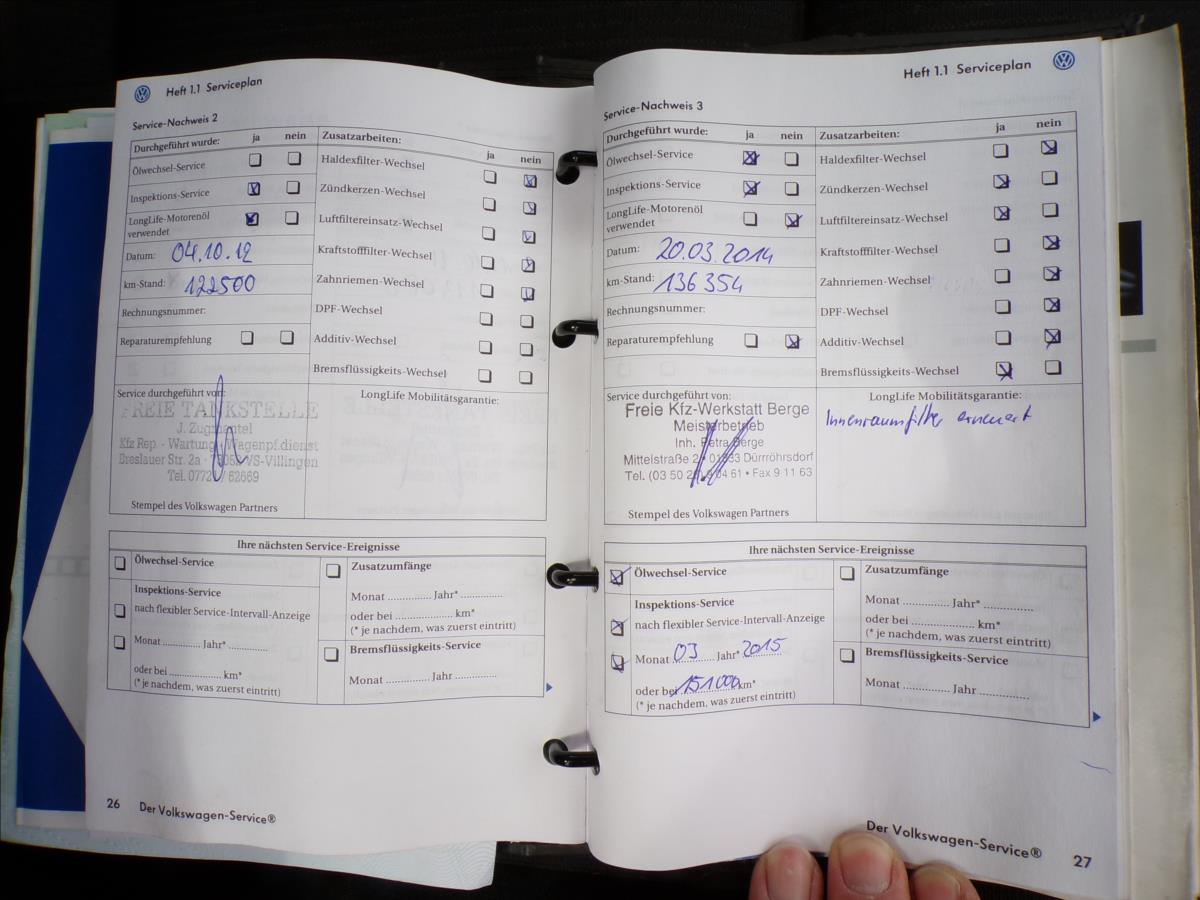 Heft 1.1 Serviceplan
Service-Nachweis 2
Durchgeführt wurde: ja nein
Ölwechsel-Service
Inspektions-Service
LongLife-Motorenöl
verwendet
Datum: 04.10.12
km-Stand: 122500
Rechnungsnummer:
Reparaturempfehlung
Zusatzarbeiten: ja nein
Haldexfilter-Wechsel
Zündkerzen-Wechsel
Luftfiltereinsatz-Wechsel
Kraftstofffilter-Wechsel
Zahnriemen-Wechsel
DPF-Wechsel
Additiv-Wechsel
Bremsflüssigkeits-Wechsel
Service durchgeführt von:
FREIE TANKSTELLE
Kfz Rep. - Wartung - Wagenpf.dienst
Breslauer Str. 2a VS-Villingen
Tel. 62669
Stempel des Volkswagen Partners
LongLife Mobilitätsgarantie:
Ihre nächsten Service-Ereignisse
Ölwechsel-Service
Inspektions-Service
nach flexibler Service-Intervall-Anzeige
Monat ............ Jahr* ............
oder bei .................... km*
(* je nachdem, was zuerst eintritt)
Zusatzumfänge
Monat ............. Jahr* .............
oder bei .................... km*
(* je nachdem, was zuerst eintritt)
Bremsflüssigkeits-Service
Monat ............ Jahr ............
26 Der Volkswagen-Service®
Heft 1.1 Serviceplan
Service-Nachweis 3
Durchgeführt wurde: ja nein
Ölwechsel-Service
Inspektions-Service
LongLife-Motorenöl
verwendet
Datum: 20.03.2014
km-Stand: 136354
Rechnungsnummer:
Reparaturempfehlung
Zusatzarbeiten: ja nein
Haldexfilter-Wechsel
Zündkerzen-Wechsel
Luftfiltereinsatz-Wechsel
Kraftstofffilter-Wechsel
Zahnriemen-Wechsel
DPF-Wechsel
Additiv-Wechsel
Bremsflüssigkeits-Wechsel
Service durchgeführt von:
Freie Kfz-Werkstatt Berge
Meisterbetrieb
Inh. Petra Berge
Mittelstraße Dürrröhrsdorf
Tel. (03 50 61 • Fax 9 11 63
Stempel des Volkswagen Partners
LongLife Mobilitätsgarantie:
Innenraumfilter erneuert
Ihre nächsten Service-Ereignisse
Ölwechsel-Service
Inspektions-Service
nach flexibler Service-Intervall-Anzeige
Monat 03 Jahr* 2015
oder bei 151000 km*
(* je nachdem, was zuerst eintritt)
Zusatzumfänge
Monat ............. Jahr* .............
oder bei .................... km*
(* je nachdem, was zuerst eintritt)
Bremsflüssigkeits-Service
Monat ............ Jahr ............
Der Volkswagen-Service® 27